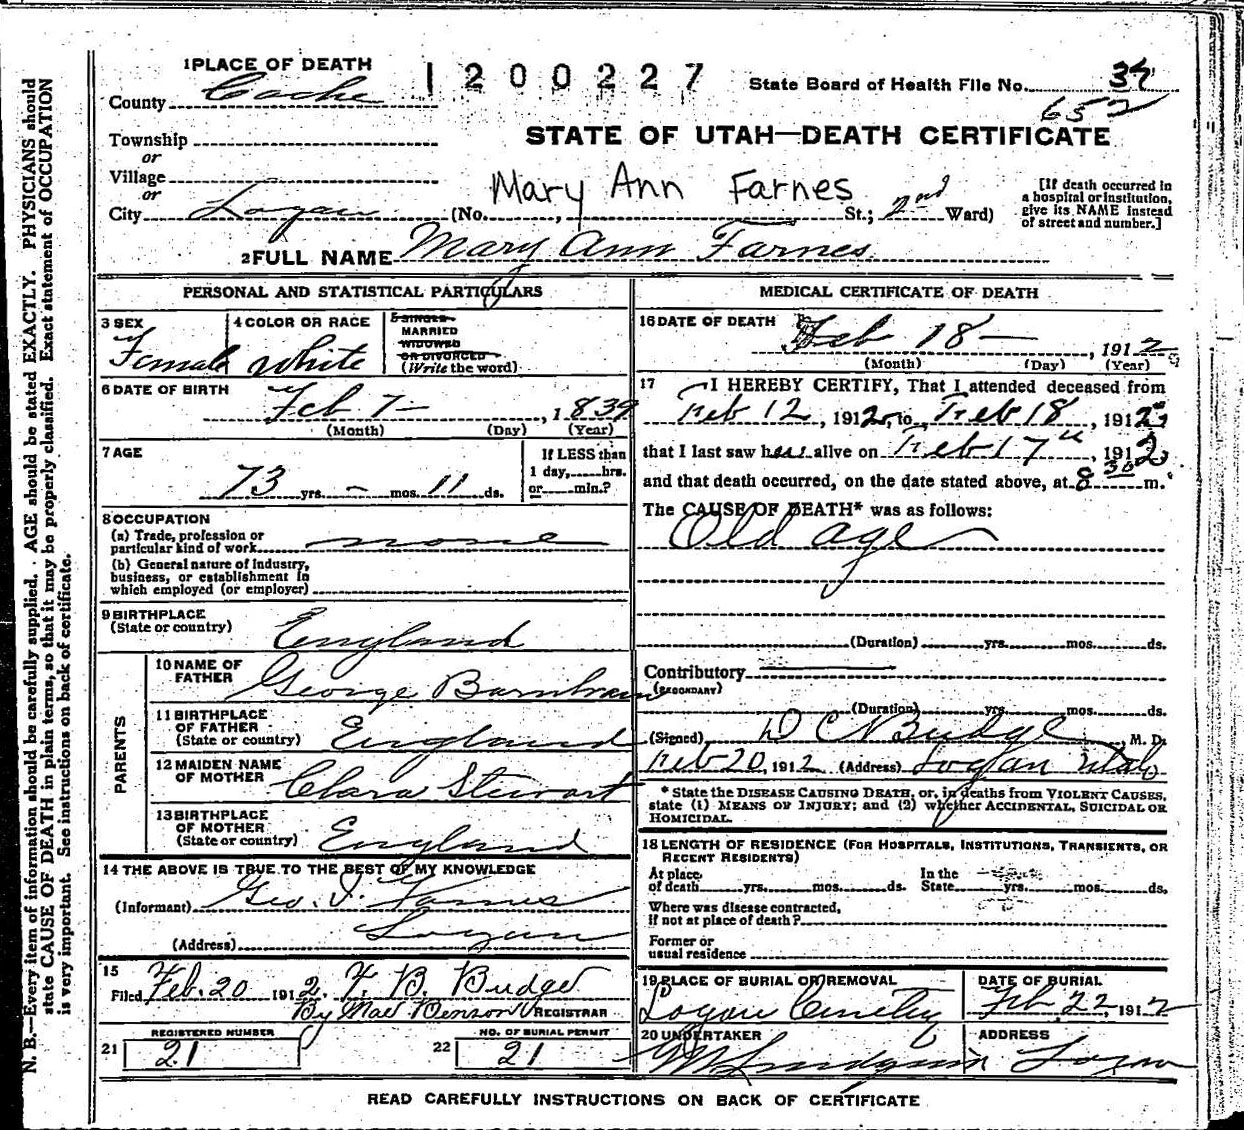 1PLACE OF DEATH
1200227
State Board of Health File No. 34
652
County Cache
STATE OF UTAH—DEATH CERTIFICATE
Township
or
Village
or
City Logan (No. , St.; 2nd Ward)
Mary Ann Farnes
[If death occurred in
a hospital or institution,
give its NAME instead
of street and number.]
2FULL NAME Mary Ann Farnes
PERSONAL AND STATISTICAL PARTICULARS
3 SEX
Female
4 COLOR OR RACE
White
5 SINGLE
MARRIED
WIDOWED
OR DIVORCED
(Write the word)
6 DATE OF BIRTH
Feb 7 — , 1839
(Month) (Day) (Year)
7 AGE
73 yrs. – mos. 11 ds.
If LESS than
1 day, hrs.
or min.?
8 OCCUPATION
(a) Trade, profession or
particular kind of work none
(b) General nature of Industry,
business, or establishment in
which employed (or employer)
9 BIRTHPLACE
(State or country) England
PARENTS
10 NAME OF
FATHER George Barnham
11 BIRTHPLACE
OF FATHER
(State or country) England
12 MAIDEN NAME
OF MOTHER Clara Stewart
13 BIRTHPLACE
OF MOTHER
(State or country) England
14 THE ABOVE IS TRUE TO THE BEST OF MY KNOWLEDGE
(Informant) Geo. Farnes
(Address) Logan
15
Filed Feb. 20 1912. F. B. Budge
By Mae Benson REGISTRAR
REGISTERED NUMBER
21 21
NO. OF BURIAL PERMIT
22 21
MEDICAL CERTIFICATE OF DEATH
16 DATE OF DEATH
Feb 18 — , 1912
(Month) (Day) (Year)
17 I HEREBY CERTIFY, That I attended deceased from
Feb 12, 1912, to Feb 18, 1912,
that I last saw her alive on Feb 17th, 1912,
and that death occurred, on the date stated above, at 8 30 m.
The CAUSE OF DEATH* was as follows:
Old age
(Duration) yrs. mos. ds.
Contributory
(SECONDARY)
(Duration) yrs. mos. ds.
(Signed) D C Budge M. D.
Feb 20, 1912 (Address) Logan Utah
* State the DISEASE CAUSING DEATH, or, in deaths from VIOLENT CAUSES,
state (1) MEANS OF INJURY; and (2) whether ACCIDENTAL, SUICIDAL OR
HOMICIDAL.
18 LENGTH OF RESIDENCE (FOR HOSPITALS, INSTITUTIONS, TRANSIENTS, OR
RECENT RESIDENTS)
At place
of death yrs. mos. ds.
In the
State yrs. mos. ds.
Where was disease contracted,
If not at place of death?
Former or
usual residence
19 PLACE OF BURIAL OR REMOVAL
Logan Cemetery
DATE OF BURIAL
Feb 22, 1912
20 UNDERTAKER
ADDRESS
Logan
READ CAREFULLY INSTRUCTIONS ON BACK OF CERTIFICATE
N. B.—Every item of information should be carefully supplied. AGE should be stated EXACTLY. PHYSICIANS should
state CAUSE OF DEATH in plain terms, so that it may be properly classified. Exact statement of OCCUPATION
is very important. See instructions on back of certificate.